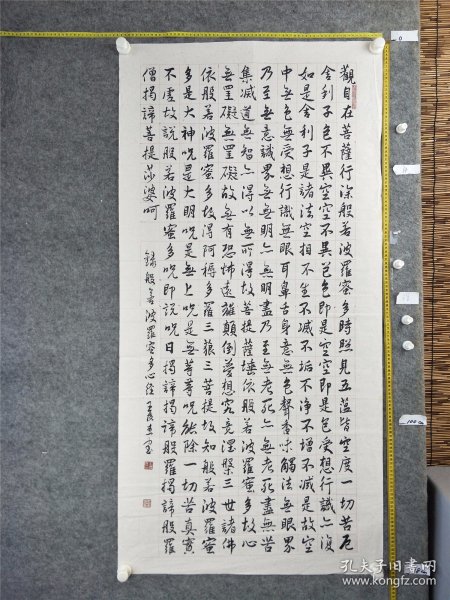 觀自在菩薩行深般若波羅蜜多時照見五蕴皆空度一切苦厄
舍利子色不異空空不異色色即是空空即是色受想行識亦復
如是舍利子是諸法空相不生不滅不垢不净不增不減是故空
中無色無受想行識無眼耳鼻舌身意無色聲香味觸法無眼界
乃至無意識界無無明亦無明盡乃至無老死亦無老死盡無苦
集滅道無智亦得以無所得故菩提薩埵依般若波羅蜜多故心
無罣礙無罣礙故無有恐怖遠離顛倒夢想究竟涅槃三世諸佛
依般若波羅蜜多故得阿耨多羅三藐三菩提故知般若波羅蜜
多是大神咒是大明咒是無上咒是無等等咒能除一切苦真實
不虛故説般若波羅蜜多咒即説咒曰揭諦揭諦般羅揭諦般羅
僧揭諦菩提莎婆呵
錄般若波羅蜜多心经
孔夫子旧书网
www.kongfz.com